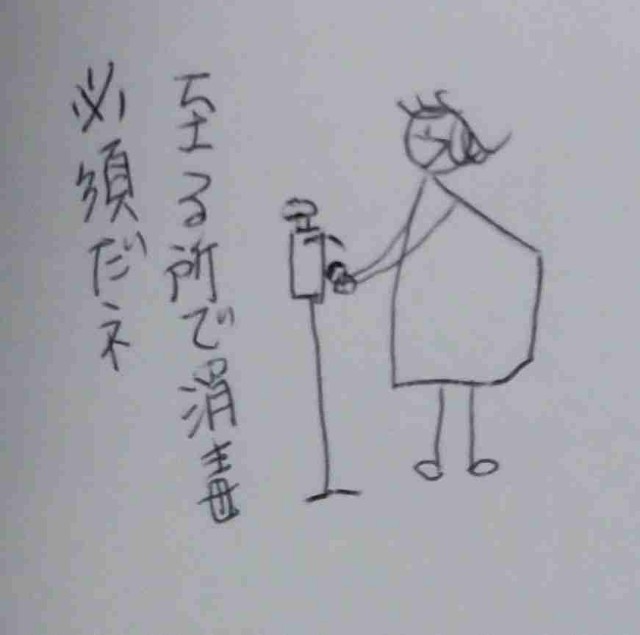 至る所で消毒
必須だネ